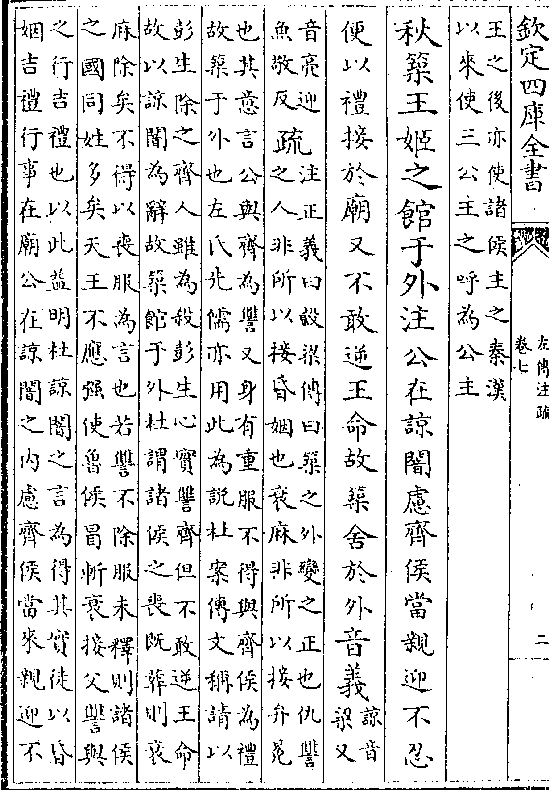 欽定四庫全書
左傳注疏
卷七
二
王之後亦使諸侯主之秦漢
以來使三公主之呼為公主
秋築王姬之館于外注公在諒闇慮齊侯當親迎不忍
便以禮接於廟又不敢逆王命故築舍於外音義
諒音
梁又
音亮迎
魚敬反
疏
注正義曰榖梁傳曰築之外變之正也仇讐
之人非所以接昏姻也衰麻非所以接弁冕
也其意言公與齊為讐又身有重服不得與齊侯為禮
故築于外也左氏先儒亦用此為說杜案傳文稱請以
彭生除之齊人雖為殺彭生心實讐齊但不敢逆王命
故以諒闇為辭故築館于外杜謂諸侯之喪既葬則衰
麻除矣不得以喪服為言也若讐不除服未釋則諸侯
之國同姓多矣天王不應强使魯侯冒斬衰接父讐與
之行吉禮也以此益明杜諒闇之言為得其實徒以昏
姻吉禮行事在廟公在諒闇之内慮齊侯當來親迎不